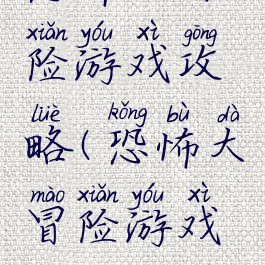 xiǎn yóu xì gōng
险游戏攻
lüè kǒng bù dà
略(恐怖大
mào xiǎn yóu xì
冒险游戏